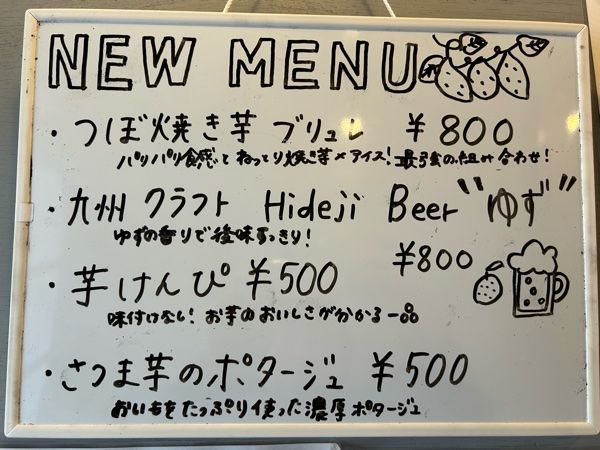 NEW MENU
・つぼ焼き芋 ブリュレ ¥800
パリパリ食感とねっとり焼き芋×アイス!最強の組み合わせ!
・九州 クラフト Hideji Beer "ゆず"
ゆずの香りで後味すっきり!
¥800
・芋けんぴ ¥500
味付けない!お芋のおいしさが分かる一品
・さつま芋のポタージュ ¥500
おいもをたっぷり使った濃厚ポタージュ